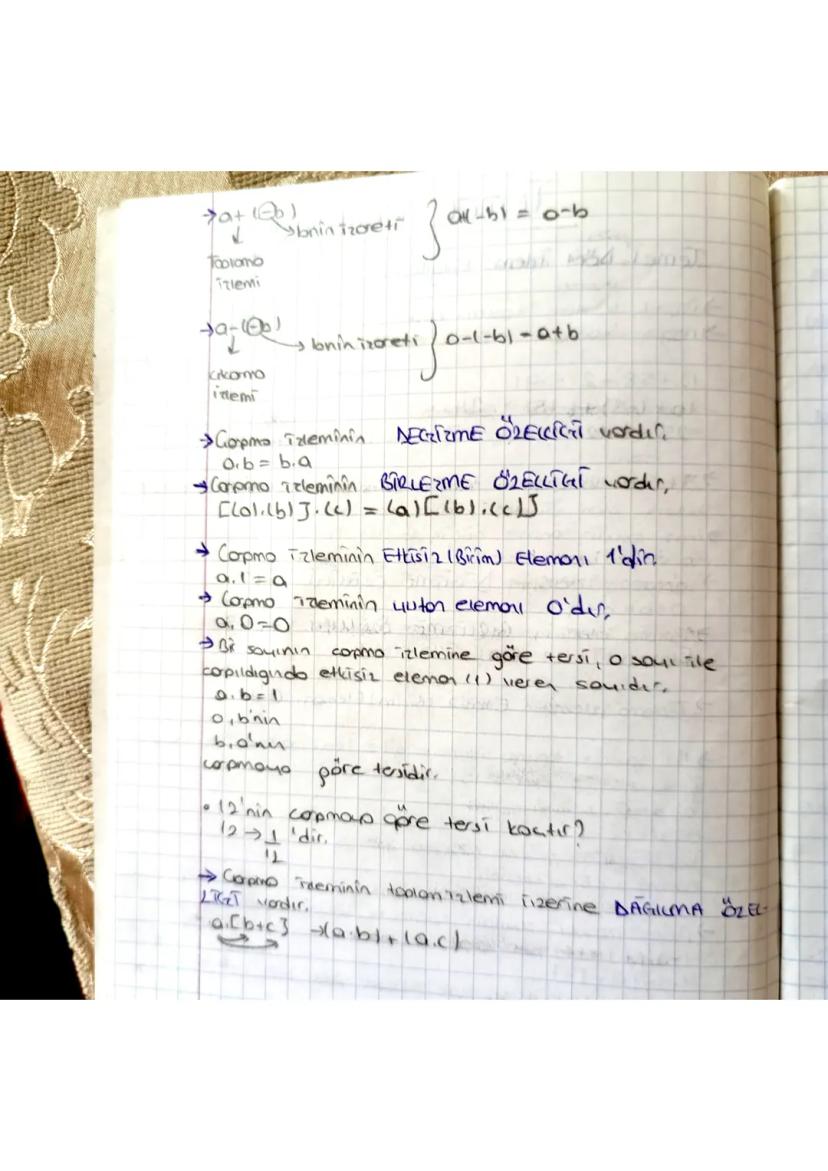 →a+(-b) →bnin işareti } a+(-b) = a-b
↓
Toplama
işlemi
→a-(-b) → bnin işareti } a-(-b) = a+b
↓
çıkarma
işlemi
→Çarpma işleminin DEĞİŞME ÖZELLİĞİ vardır.
a.b = b.a
→Çarpma işleminin BİRLEŞME ÖZELLİĞİ vardır.
[(a).(b)].(c) = (a)[(b).(c)]
→ Çarpma işleminin Etkisiz (Birim) Elemanı 1'dir.
a.1 = a
→ Çarpma işleminin yutan elemanı 0'dır.
a.0=0
→Bir sayının çarpma işlemine göre tersi, o sayı ile
çarpıldığında etkisiz eleman (1) veren sayıdır.
a.b=1
a, b'nin
b, a'nın
çarpmaya göre tersidir.
• 12'nin çarpmaya göre tersi kaçtır?
12 → 1/12 'dir.
→ Çarpma işleminin toplam işlemi üzerine DAĞILMA ÖZEL-
LİĞİ vardır.
a.[b+c] →(a.b)+(a.c)